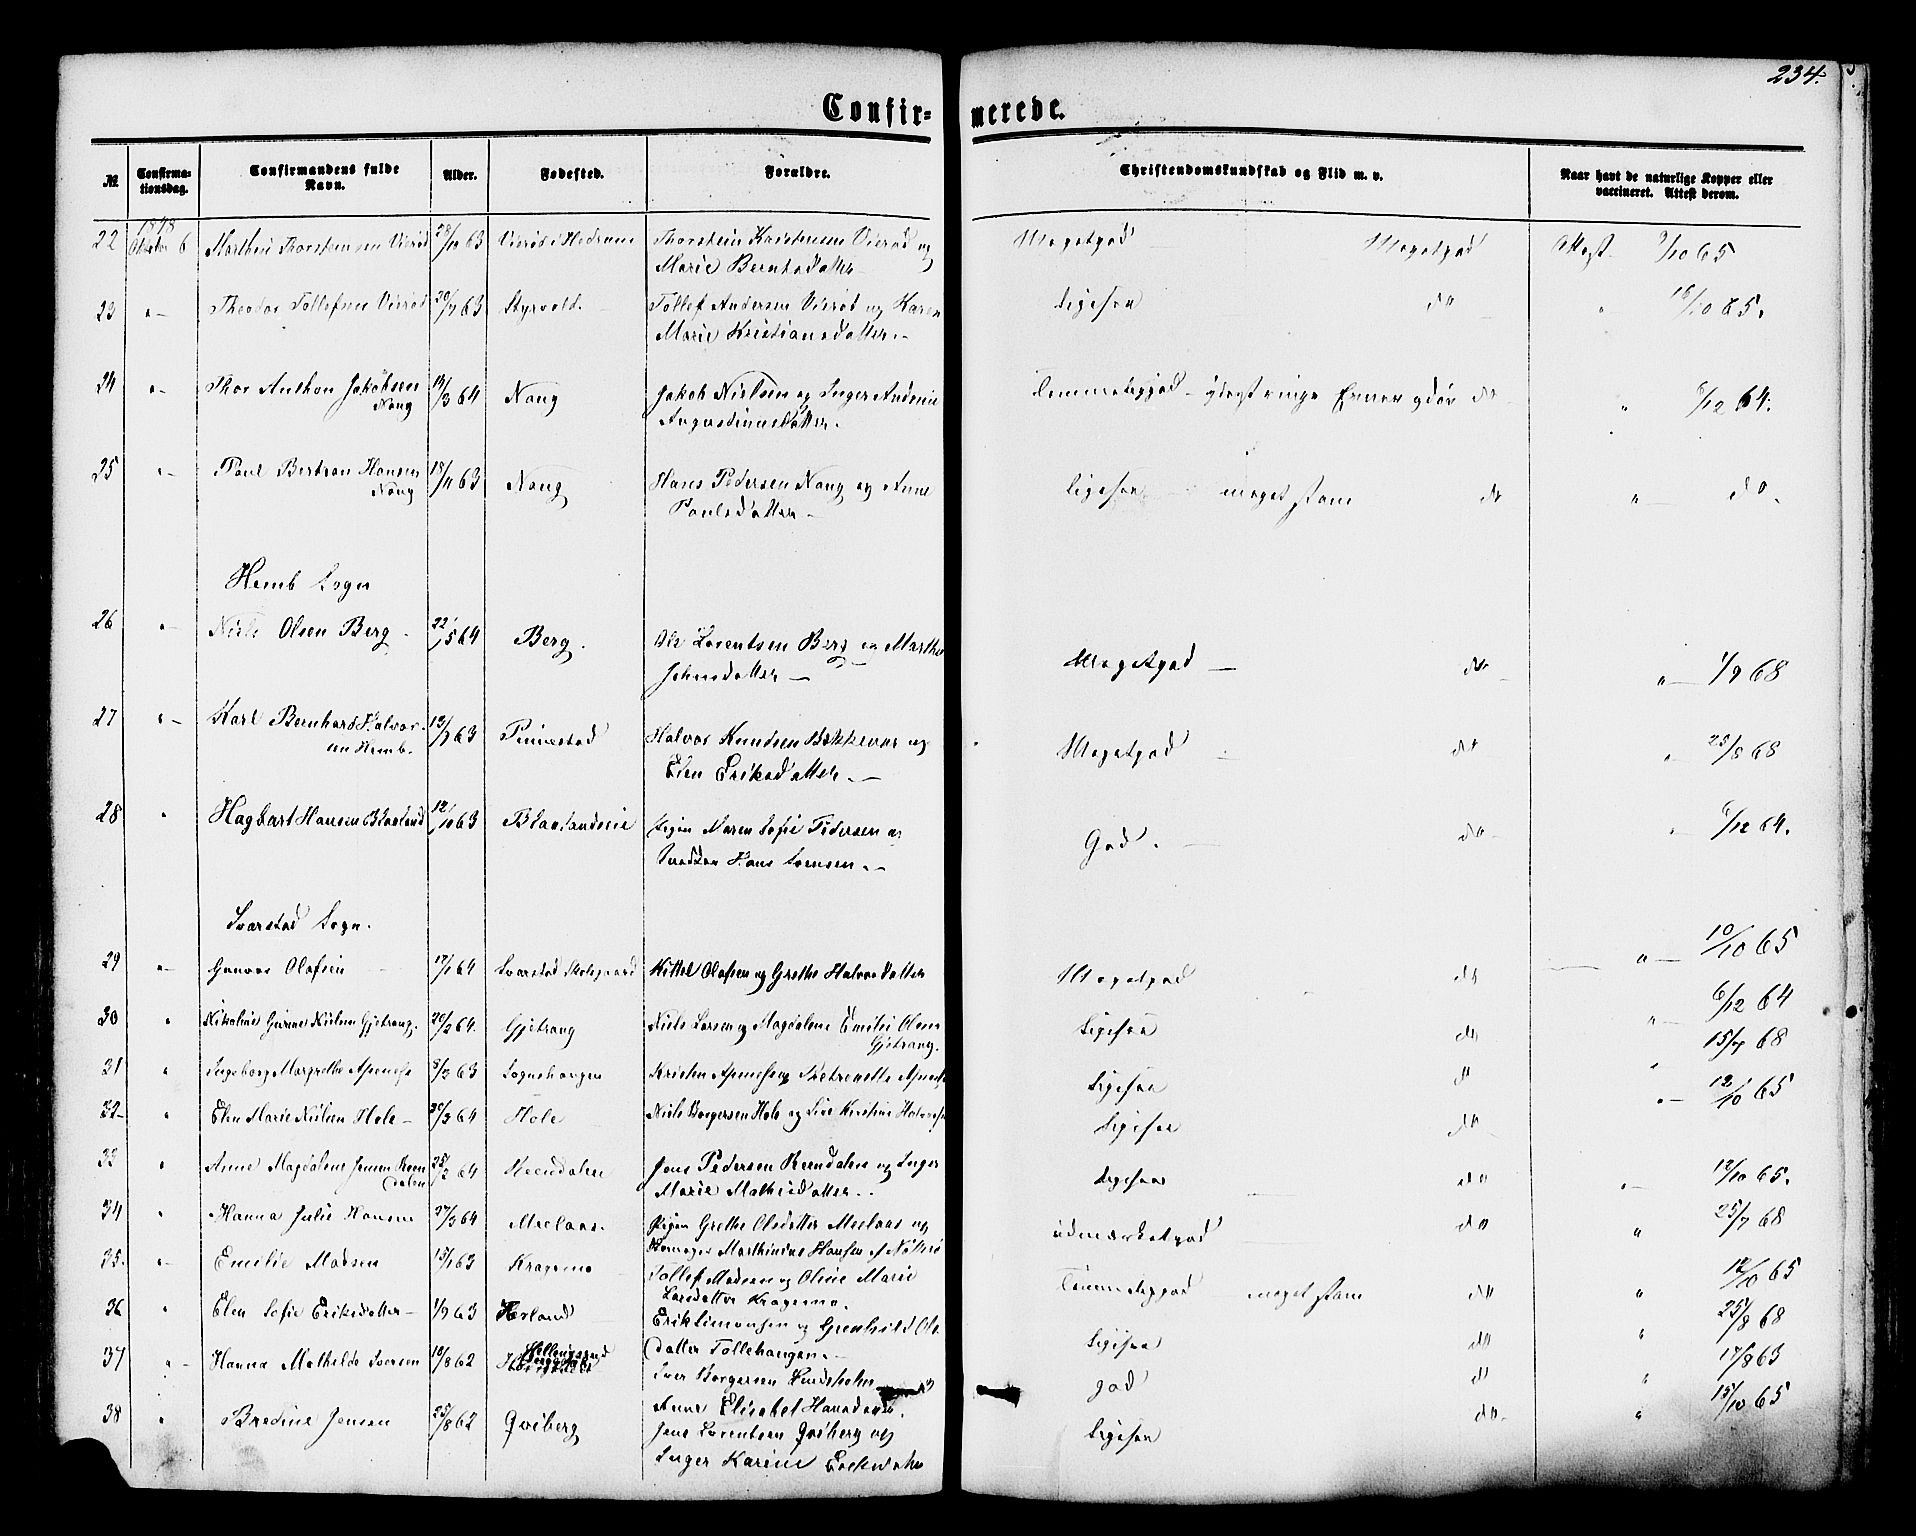 234.
Confirmerede.
№ Confirmationsdag. Confirmandens fulde Navn. Alder. Fødested. Forældre. Christendomskundskab og Flid m. v. Naar havt de naturlige Kopper eller vaccineret. Attest derom.
1878
22 Oktober 6 Marthin Thorstensen Vierød 28/10 63 Vierød i Hedrum Thorstein Kristensen Vierød og Meget god Meget god Attest 9/10 65
Marie Berntsdatter
23 " Theodor Tollefsen Vierød 20/7 63 Styrvold Tollef Andersen Vierød og Karen Ligesaa do " 16/10 65.
Marie Kristiansdatter.
24 " Thor Anthon Jakobsen 14/3 64 Nong Jakob Nielsen og Inger Andrine Temmelig god do " 6/12 64.
Nong Augustinusdatter.
25 " Paul Bertran Hansen 18/11 63 Nong Hans Pedersen Nong og Anne Ligesaa meget stam do " do.
Nong Paulsdatter
Hemb Sogn
26 " Niels Olsen Berg. 22/5 64 Berg. Ole Lorentsen Berg og Marthe Meget god do " 1/9 68
Johnsdatter
27 " Karl Bernhard Halvor- 13/7 63 Halvor Knudsen Bækkevar og Meget god do " 25/8 68
sen Hemb. Elen Eriksdatter.
28 " Hagbart Hansen Blaaland 12/10 63 Pigen Maren Sofie Pedersen og God. do " 6/12 64.
Hans Svensen.
Svarstad Sogn.
29 " Gunvor Olafsen 17/1 64 Svarstad Kittel Olafsen og Grethe Halvorsdatter Meget god do " 10/10 65
30 " Nikoline Gurine Nielsen Gjetrang. 20/2 64. Gjetrang Niels Larsen og Magdalene Emilie Olsen Ligesaa do " 6/12 64
Gjetrang.
31 " Ingeborg Margrethe 8/2 63 Sognehougen Kristen Ligesaa do " 15/7 68
32 " Elen Marie Nielsen Hole 20/3 64 Hole Niels Borgersen Hole og Ligesaa do " 12/10 65
33 " Anne Magdalene Jensen Reen 25/2 64 Reendalen Jens Pedersen Reendalen og Inger Ligesaa do " 12/10 65.
dalen Marie Mathisdatter.
34 " Hanna Julie Hansen 27/3 64 Pigen Grethe Olsdatter og udmærket god do " 25/7 68
Marthinius Hansen af Nøtterø
35. " Emilie Madsen 15/1 63 Kragemo Tollef Madsen og Oline Marie Temmelig god meget stam do " 12/10 65
Larsdatter Kragemo.
36 " Elen Sofie Eriksdatter 1/9 63 Herland Erik Simonsen og Gunhild Ols Ligesaa do " 25/8 68
datter Tollehaugen.
37 " Hanna Mathilde Iversen 10/8 62 Iver Borgersen Lindsholm og God do " 17/8 63
Anne Elisabet Hansdatter.
38 " Bredine Jensen 25/8 62 Qviberg Jens Lorentsen Qviberg og Ligesaa do. " 15/10 65
Inger Karine